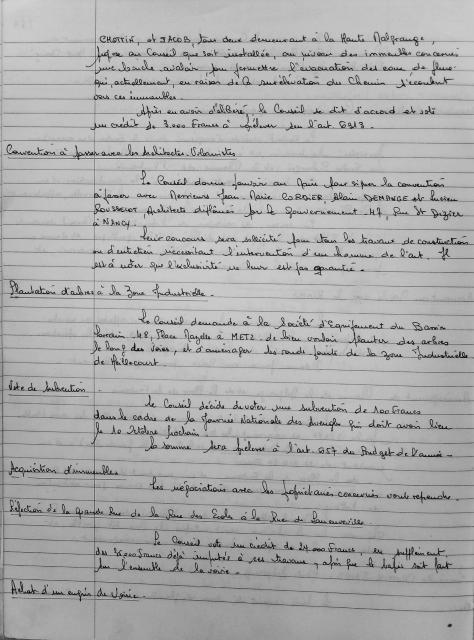 CHOTTIN, et JACOB, tous deux demeurant à la Haute Malgrange,
propose au Conseil que soit installée, au niveau des immeubles concernés
une bouche avaloir pour permettre l'évacuation des eaux de pluie
qui, actuellement, en raison de la surélévation du Chemin s'écoulent
vers ces immeubles.
Après en avoir délibéré, le Conseil se dit d'accord et vote
un crédit de 3.000 Francs à prélever sur l'art.
Convention à passer avec les Architectes-Urbanistes
Le Conseil donne pouvoir au Maire pour signer la convention
à passer avec Messieurs Jean Marie CORDIER, Alain DEMANGE et Lucien
ROUSSELOT Architectes diplômés par le Gouvernement 47, Rue St Dizier
à NANCY.
Leur concours sera sollicité pour tous les travaux de construction
ou d'entretien nécessitant l'intervention d'un homme de l'art. Il
est à noter que l'exclusivité ne leur est pas garantie.
Plantation d'arbres à la Zone Industrielle.
Le Conseil demande à la Société d'Equipement du Bassin
Lorrain 48, Place Mazelle à METZ de bien vouloir planter des arbres
le long des voies, et d'aménager les ronds points de la Zone Industrielle
de
Vote de subvention.
Le Conseil décide de voter une subvention de 100 Francs
dans le cadre de la Journée Nationale des Aveugles qui doit avoir lieu
le 10 Octobre prochain.
La somme sera prélevée à l'art. 657 du Budget de l'année.
Acquisition d'immeubles
Les négociations avec les propriétaires concernés vont reprendre.
Réfection de la Grande Rue de la Rue des Ecoles à la Rue de Laneuveville
Le Conseil vote un crédit de 24.000 Francs, en supplément
des Francs déjà imputés à ces travaux, après que le soit fait
sur l'ensemble de la voirie.
Achat d'un engin de Voirie.